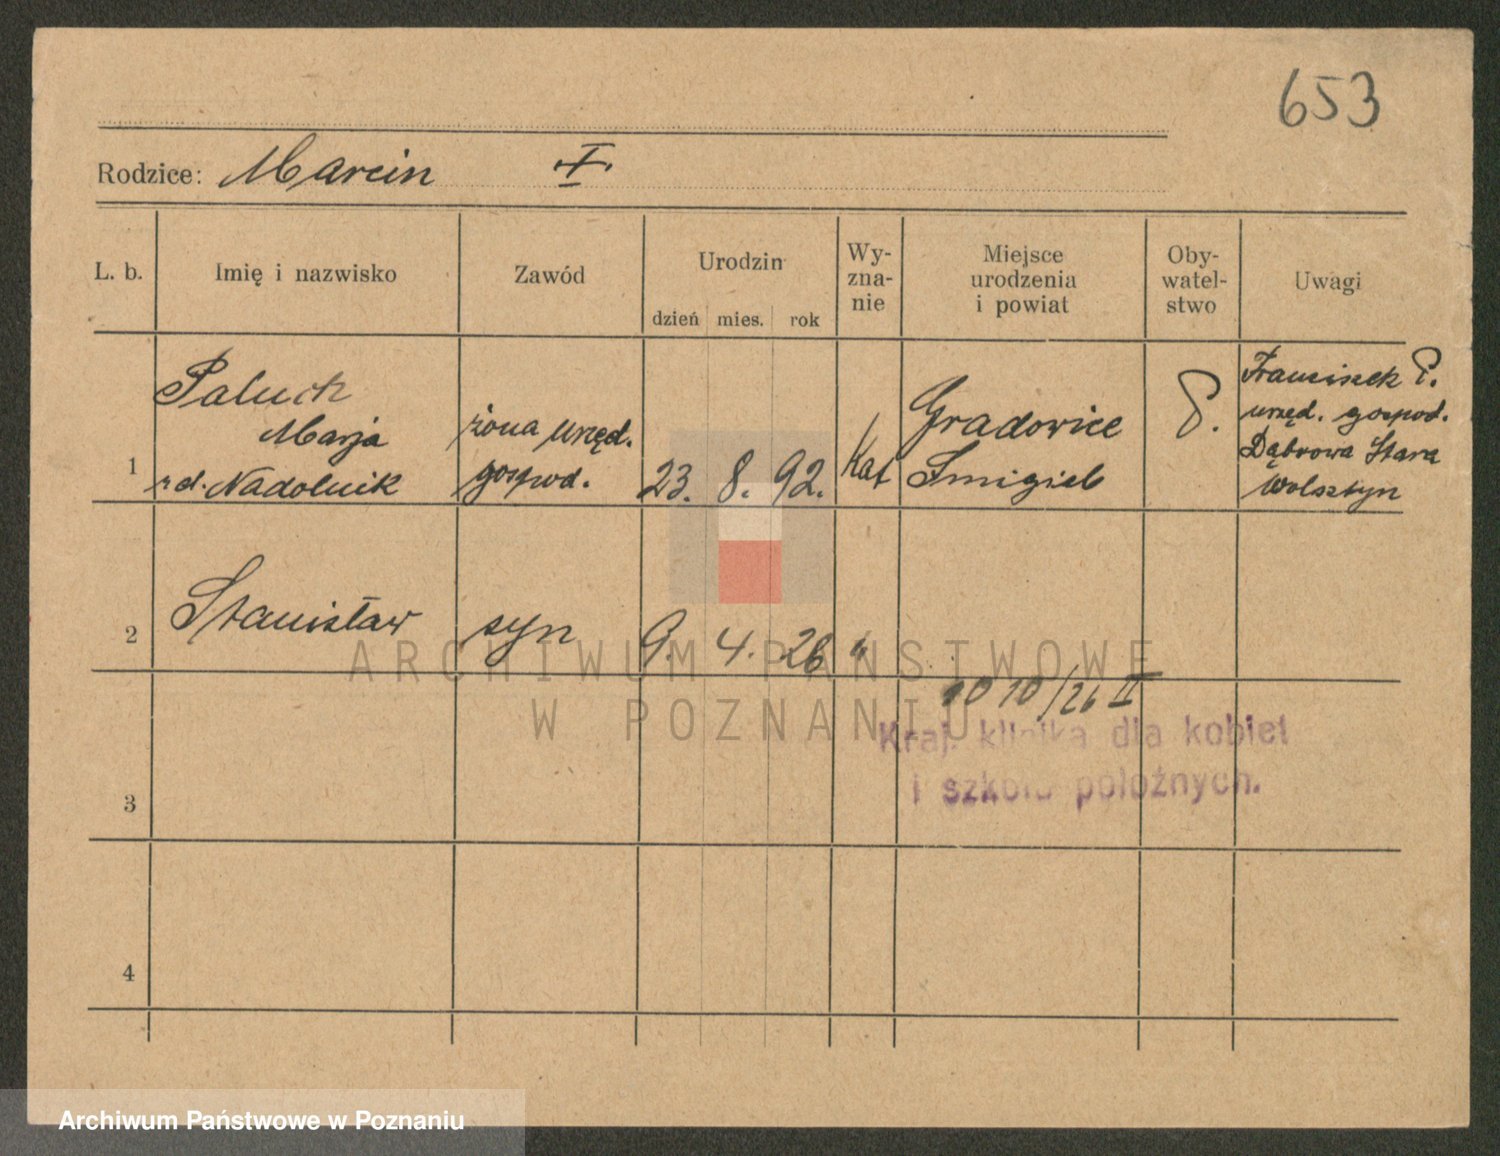 653
Rodzice: Marcin I.
L. b.
Imię i nazwisko
Zawód
Urodzin
dzień mies. rok
Wy-
zna-
nie
Miejsce
urodzenia
i powiat
Oby-
watel-
stwo
Uwagi
1
Paluch
Marja
rd. Nadolnik
żona urzęd.
gospod.
23. 8. 92.
Kat
Gradowice
Śmigiel
P.
Franciszek P.
urzęd. gospod.
Dąbrowa Stara
Wolsztyn
2
Stanisław
syn
9. 4. 26
"
10/26 II
Kraj. klinika dla kobiet
i szkoła położnych.
3
4
ARCHIWUM PAŃSTWOWE
W POZNANIU
Archiwum Państwowe w Poznaniu